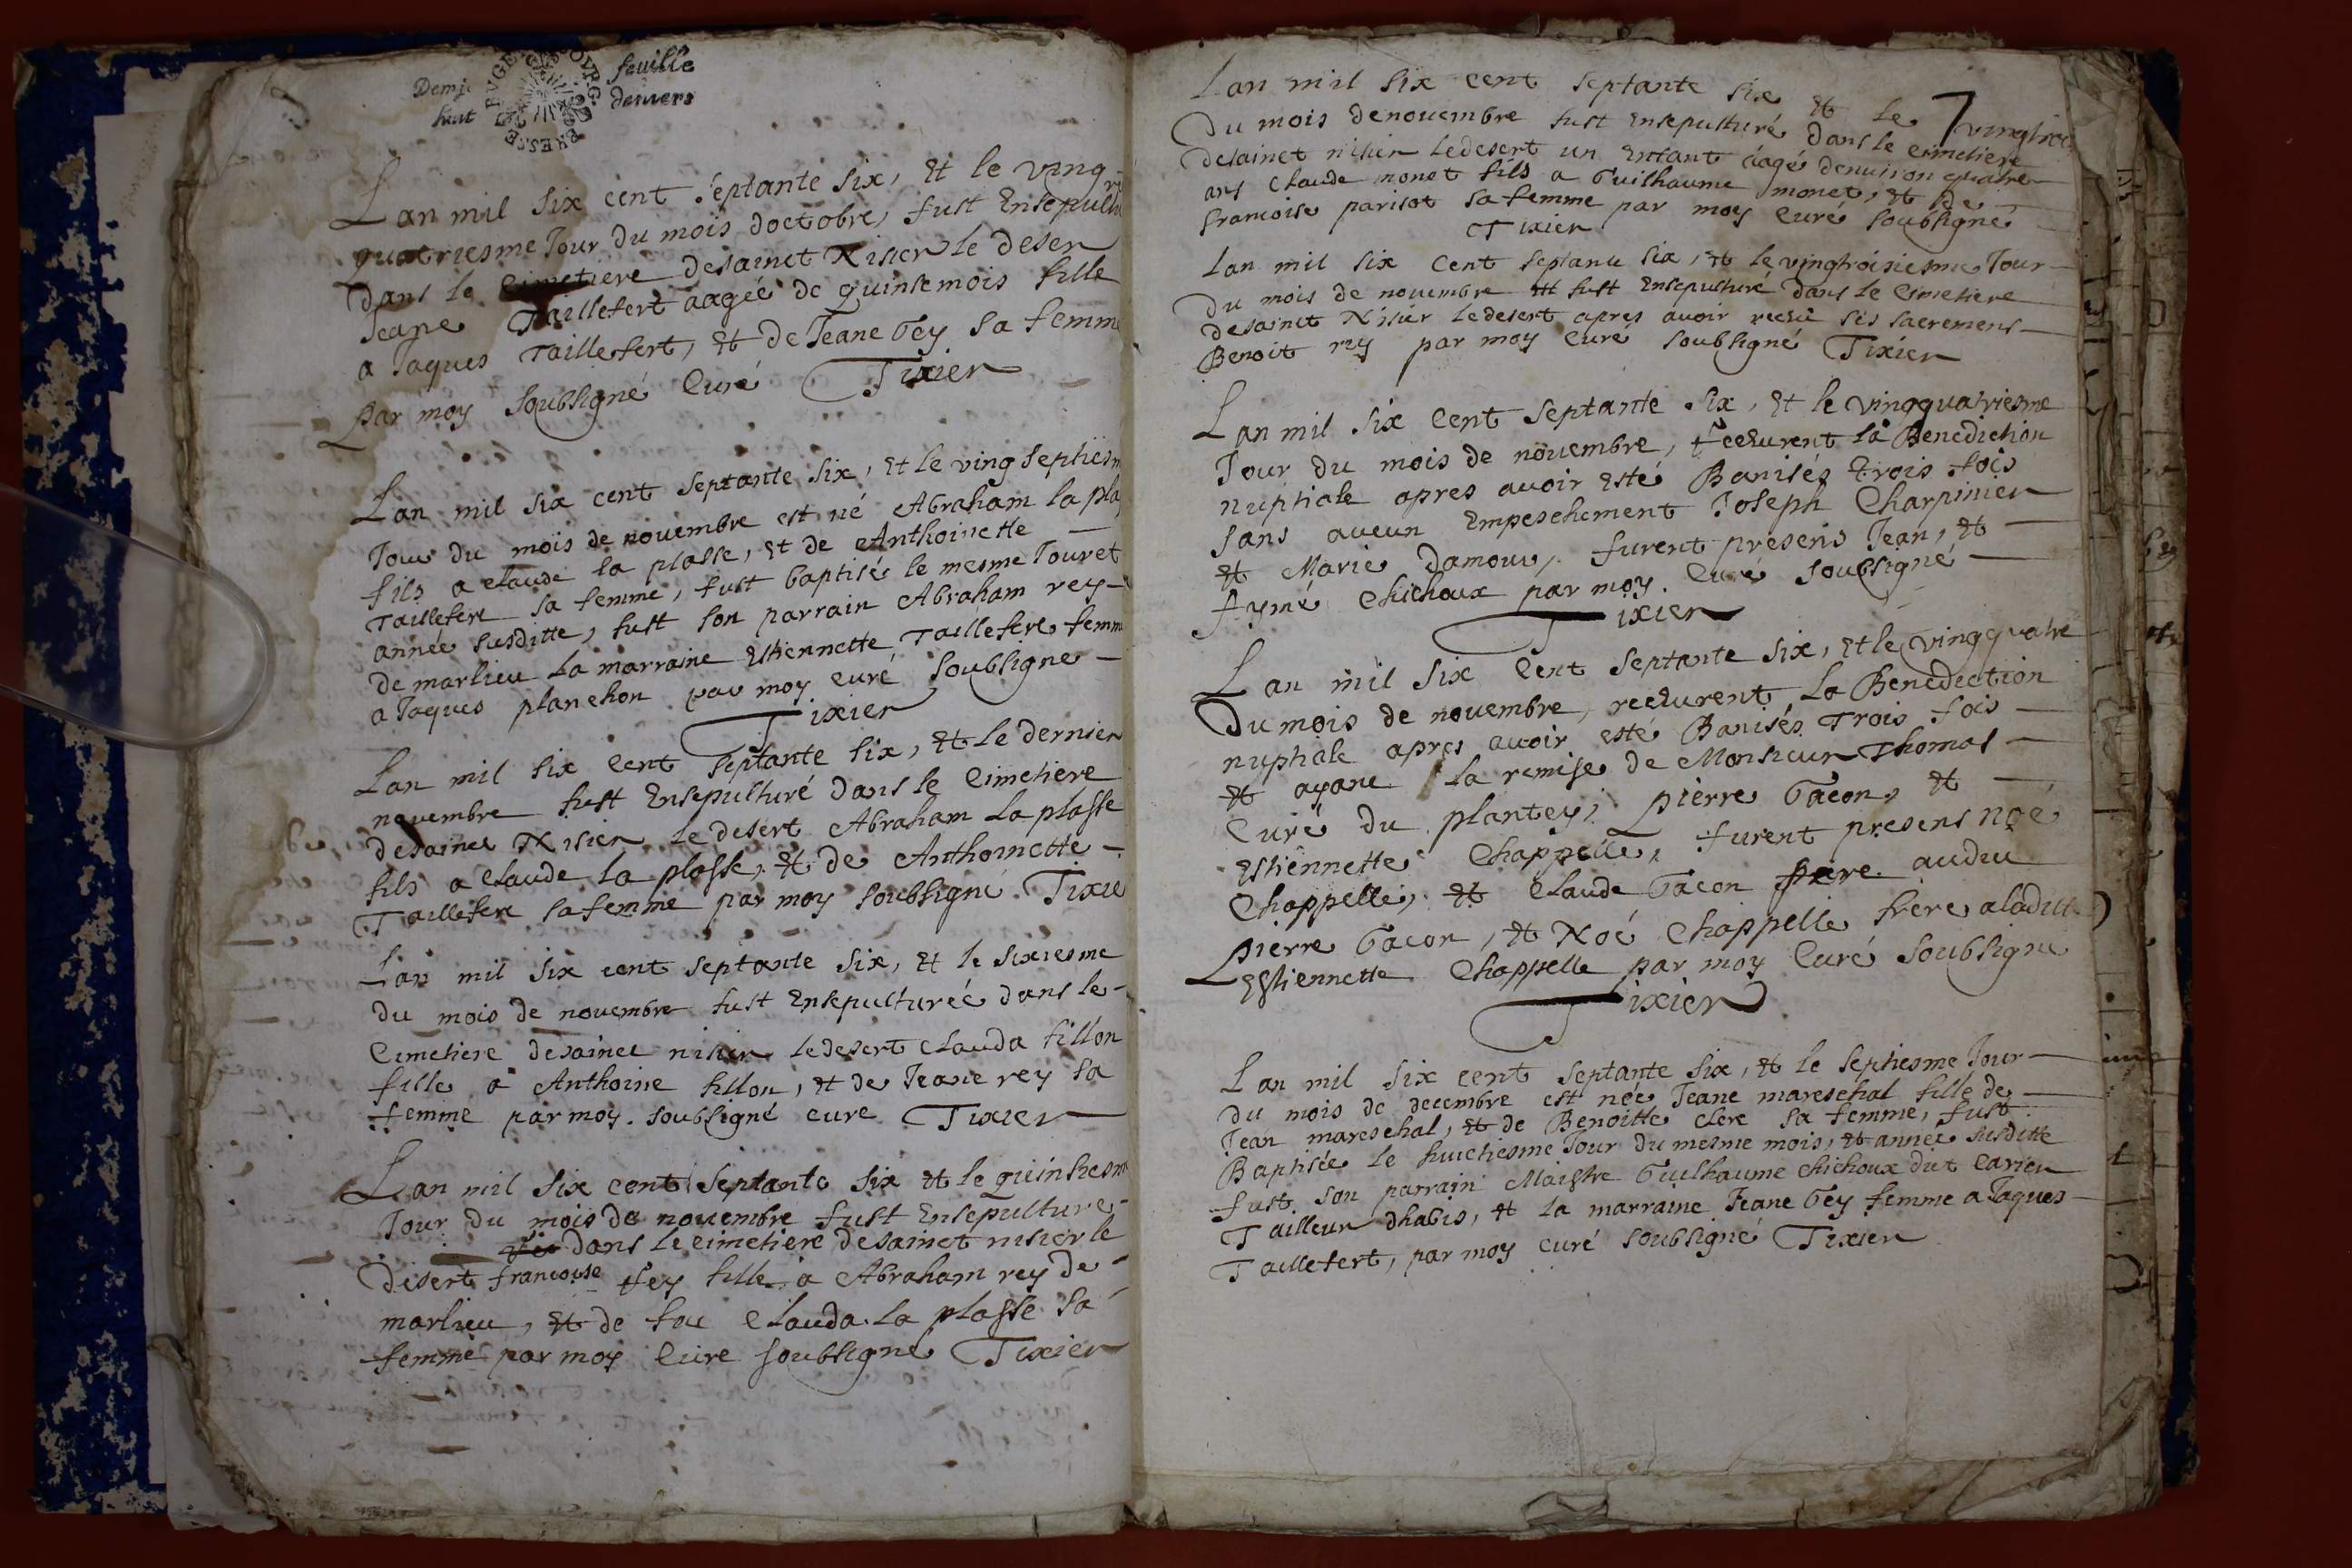 Demi feuille
huit deniers
BVGEY BOVRG BRESSE
Lan mil six cent septante six, Et le ving
quatriesme Jour du mois doctobre, fust Ensepultu
dans le Cimetiere desainct Nisier le deser
Jeane Taillefert aagée de quinse mois fille
a Jaques Taillefert, Et de Jeane Gey sa femme
par moy soubsigné Curé Tixier
Lan mil six cent septante six, Et le ving septiesm
Jour du mois de novembre est né Abraham la pla
fils a claude la plasse, Et de Anthoinette
Taillefert sa femme, fust baptisé le mesme Jour et
année susditte, fust son parrain Abraham rey
de marlieu La marraine Estiennette Taillefert femme
a Jaques planchon par moy curé soubsigne
Tixier
Lan mil six cent septante six, Et le dernier
novembre fust Ensepulturé dans le Cimetiere
desainct Nisier le desert Abraham La plasse
fils a claude la plasse, Et de Anthoinette
Taillefert sa femme par moy soubsigné Tixie
Lan mil six cent septante six, Et le sixiesme
du mois de novembre fust Ensepulturée dans le
Cimetiere desainct nisier le desert clauda fillon
fille a Anthoine fillon, Et de Jeane rey sa
femme par moy soubsigné cure Tixier
Lan mil six cent septante six Et le quinsiesm
Jour du mois de novembre fust Ensepulture
dans le cimetiere desainct nisier le
desert francoise rey fille a Abraham rey de
marlieu, Et de feu Clauda la plasse sa
femme par moy Cure soubsigné Tixier
Lan mil six cent septante six Et le vingtroi
7
du mois denouembre fust Ensepulturé dans le cimetiere
desainct nisier ledesert un Enfant aagé denuiron quatre
ans Claude monet fils a Guilhaume monet, Et de
francoise parisot sa femme par moy Curé soubsigné
Tixier
Lan mil six Cent septante six, Et le vingtroisiesme Jour
du mois de nouembre Et fust Ensepulturé dans le Cimetiere
desainct Nisier ledesert apres auoir receu ses sacremens
Benoit rey par moy curé soubsigné Tixier
Lan mil six Cent septante six, Et le vingquatriesme
Jour du mois de nouembre, receurent la Benediction
nuptiale apres auoir esté Banisés trois fois
sans aucun Empeschement Joseph Charpinier
Et Marie Damour, furent presens Jean, Et
Aymé Chichoux par moy Curé soubsigné
Tixier
Lan mil six Cent septante six, Et le vingquatre
Du mois de nouembre, receurent La Benediction
nuptiale apres auoir esté Banisés Trois fois
Et ayant la remise de Monsieur Thomas
Curé du plantey, pierre Gacon, Et
Estiennette Chappelle, furent presens noé
Chappelle, Et Claude Gacon frere audict
pierre Gacon, Et Noé Chappelle frere aladitte
Estiennette Chappelle par moy Curé soubsigne
Tixier
Lan mil six cent septante six, Et le septiesme Jour
du mois de decembre est née Jeane mareschal fille de
Jean mareschal, Et de Benoitte clere sa femme, fust
Baptisée le huictiesme Jour du mesme mois, Et année susditte
fust son parrain Maistre Guilhaume Chichoux dict Carier
Tailleur dhabis, Et la marraine Jeane Gey femme a Jaques
Taillefert, par moy curé soubsigné Tixier